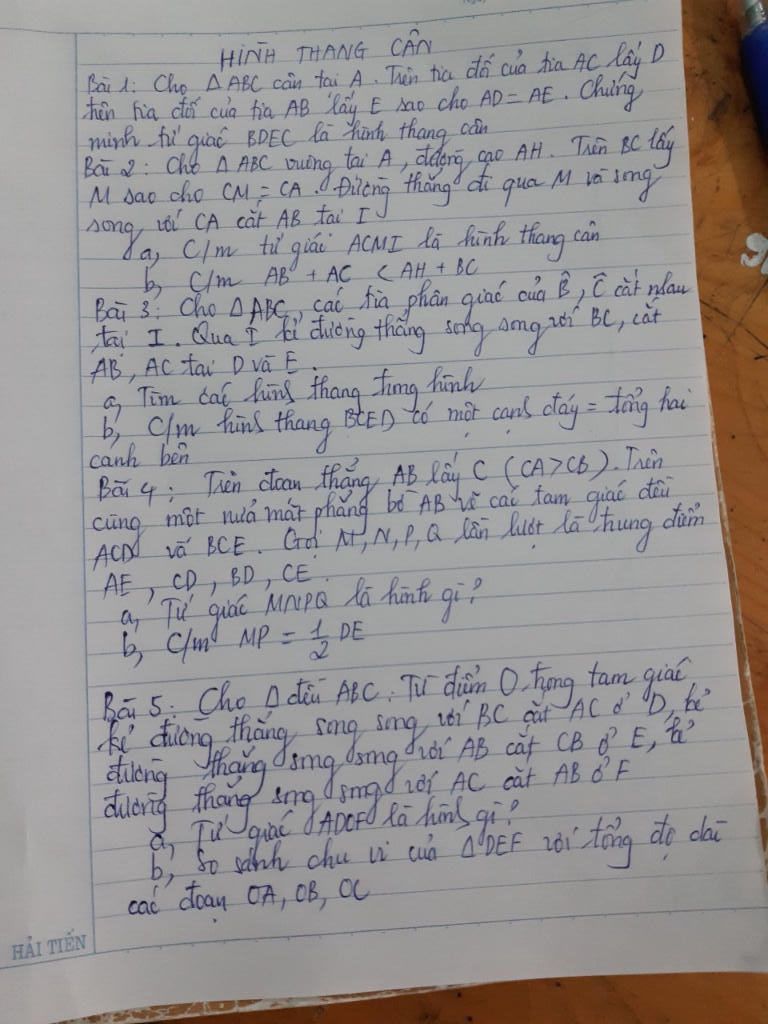 HÌNH THANG CÂN
Bài 1: Cho ∆ ABC cân tại A. Trên tia đối của tia AC lấy D
trên tia đối của tia AB lấy E sao cho AD = AE. Chứng
minh tứ giác BDEC là hình thang cân
Bài 2: Cho ∆ ABC vuông tại A, đường cao AH. Trên BC lấy
M sao cho CM = CA. Đường thẳng đi qua M và song
song với CA cắt AB tại I
a, C/m tứ giác ACMI là hình thang cân
b, C/m AB + AC < AH + BC
Bài 3: Cho ∆ ABC, các tia phân giác của B̂, Ĉ cắt nhau
tại I. Qua I kẻ đường thẳng song song với BC, cắt
AB, AC tại D và E.
a, Tìm các hình thang trong hình
b, C/m hình thang BCED có một cạnh đáy = tổng hai
cạnh bên
Bài 4: Trên đoạn thẳng AB lấy C (CA>CB). Trên
cùng một nửa mặt phẳng bờ AB vẽ các tam giác đều
ACD và BCE. Gọi M, N, P, Q lần lượt là trung điểm
AE, CD, BD, CE.
a, Tứ giác MNPQ là hình gì?
b, C/m MP = 1/2 DE
Bài 5: Cho ∆ đều ABC. Từ điểm O trong tam giác
kẻ đường thẳng song song với BC cắt AC ở D, kẻ
đường thẳng song song với AB cắt CB ở E, kẻ
đường thẳng song song với AC cắt AB ở F
a, Tứ giác ADOF là hình gì?
b, So sánh chu vi của ∆ DEF với tổng độ dài
các đoạn OA, OB, OC
HẢI TIẾN